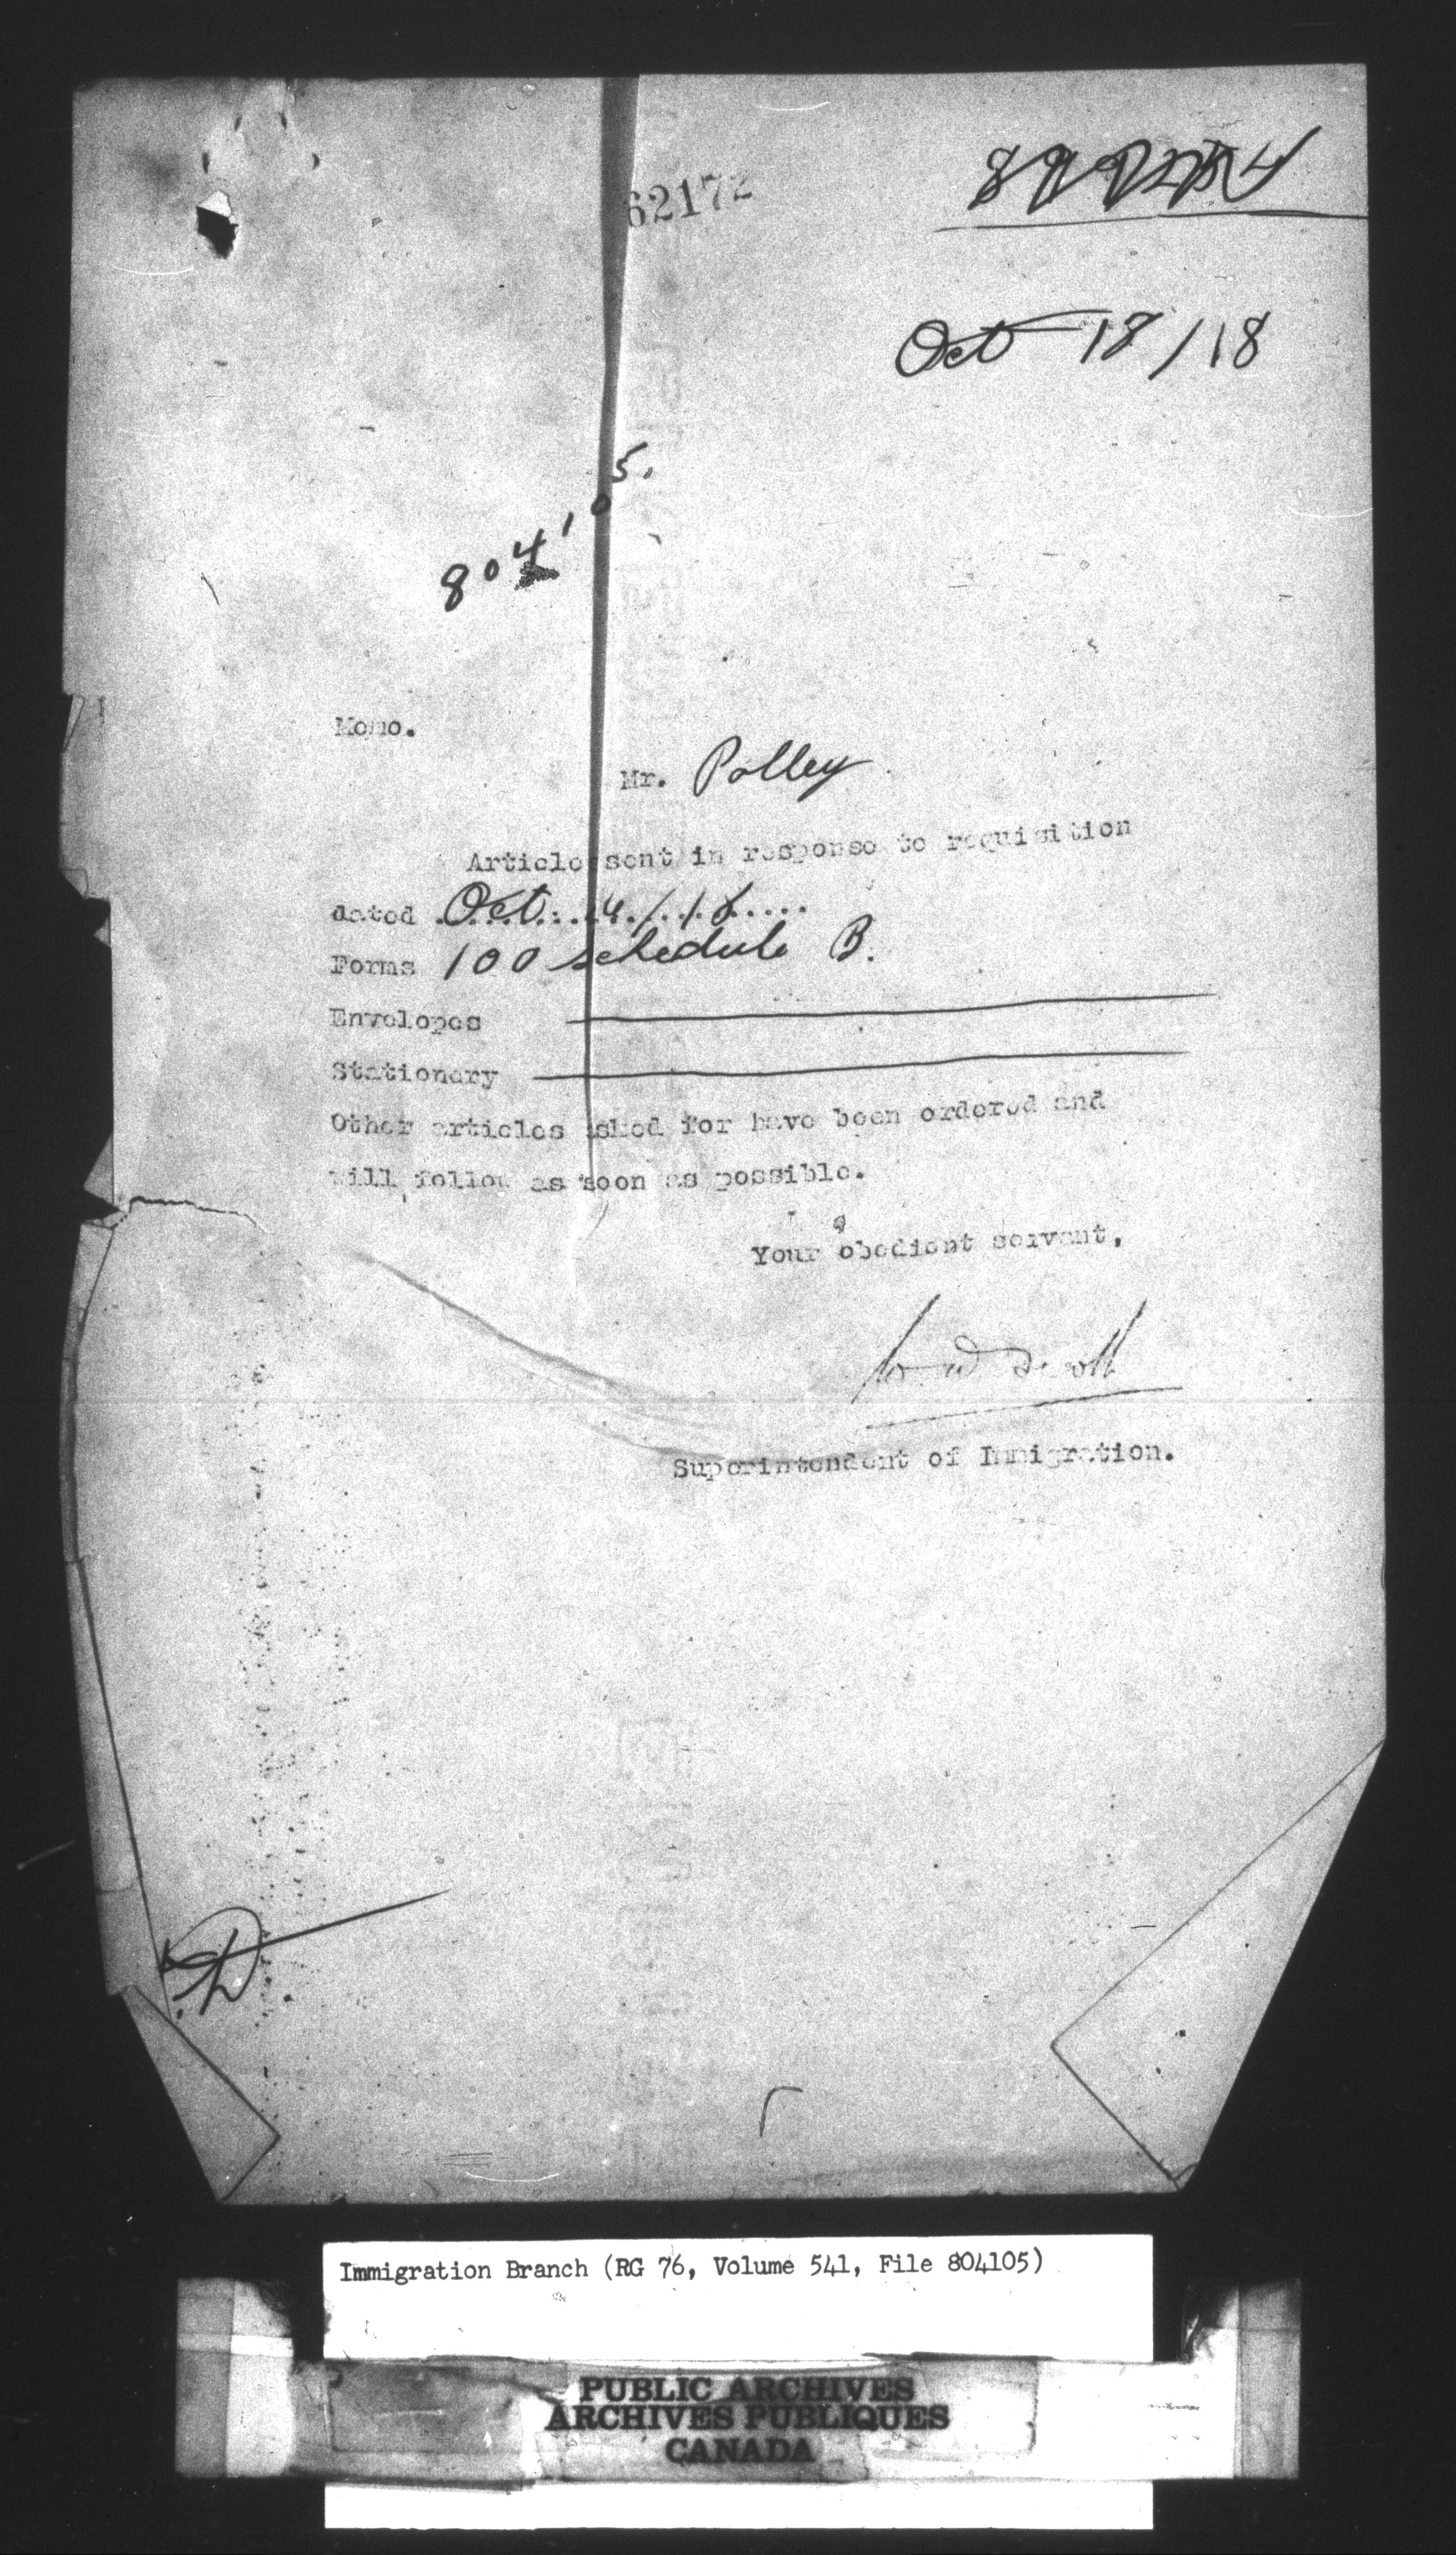 62172
Oct 18/18
804105.
Memo.
Mr. Polley
Articles sent in response to requisition
dated Oct. 14/18
Forms 100 schedule B.
Envelopes
Stationery
Other articles asked for have been ordered and
will follow as soon as possible.
Your obedient servant,
W. D. Scott
Superintendent of Immigration.
Immigration Branch (RG 76, Volume 541, File 804105)
PUBLIC ARCHIVES
ARCHIVES PUBLIQUES
CANADA